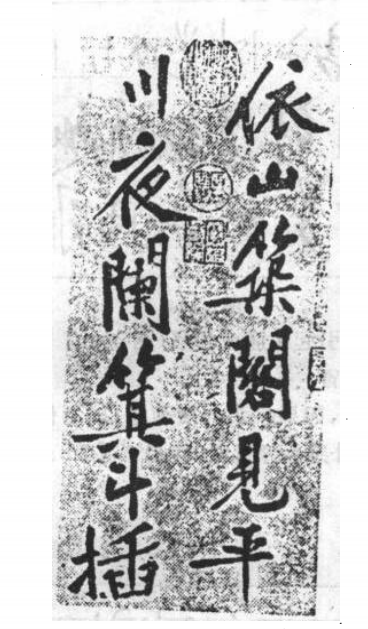 依山築閣見平
川夜闌箕斗插